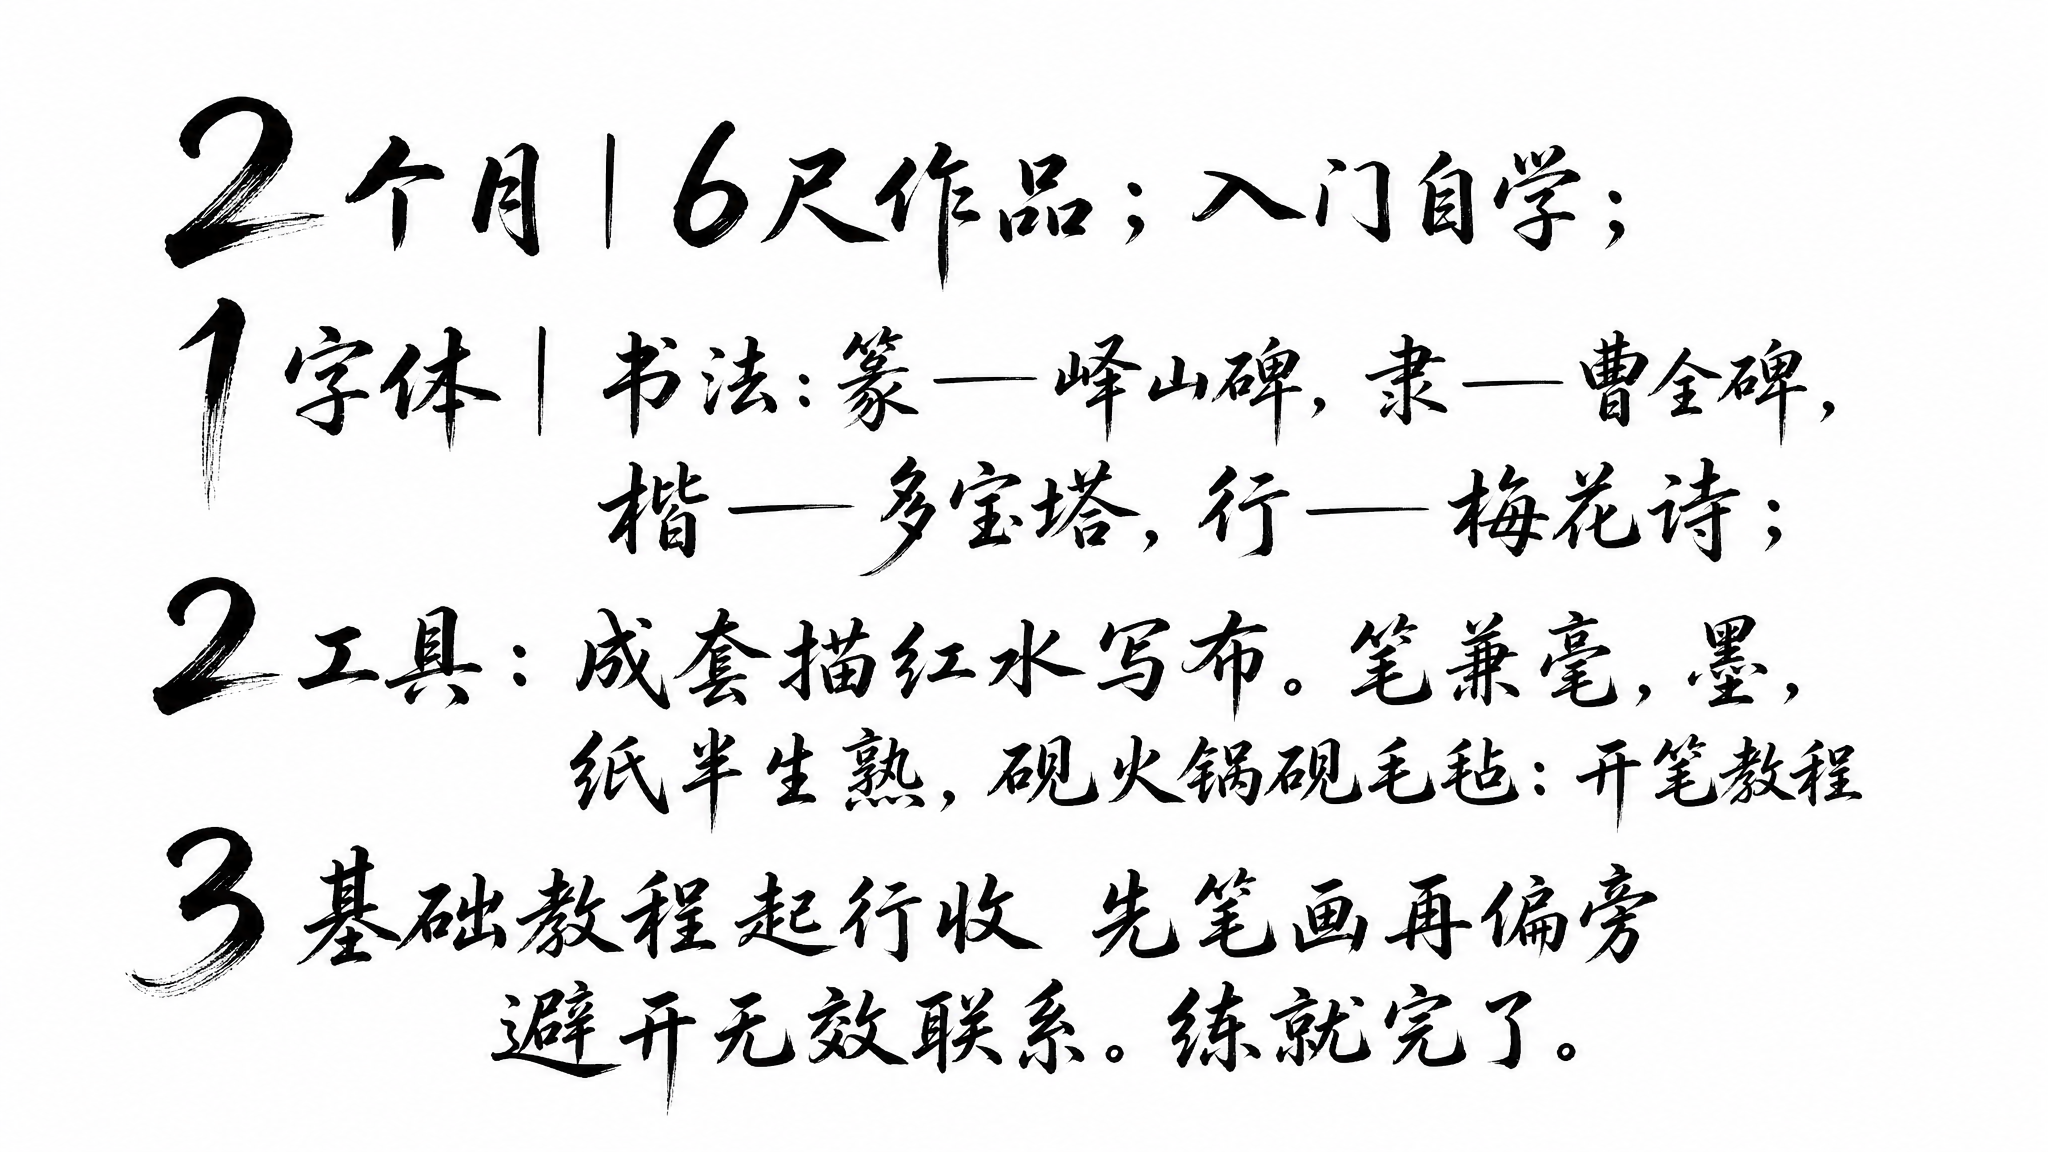 2个月|6尺作品；入门自学；
1字体|书法：篆—峄山碑，隶—曹全碑，
楷—多宝塔，行—梅花诗；
2工具：成套描红水写布。笔兼毫，墨，
纸半生熟，砚火锅砚毛毡：开笔教程
3基础教程起行收 先笔画再偏旁
避开无效联系。练就完了。